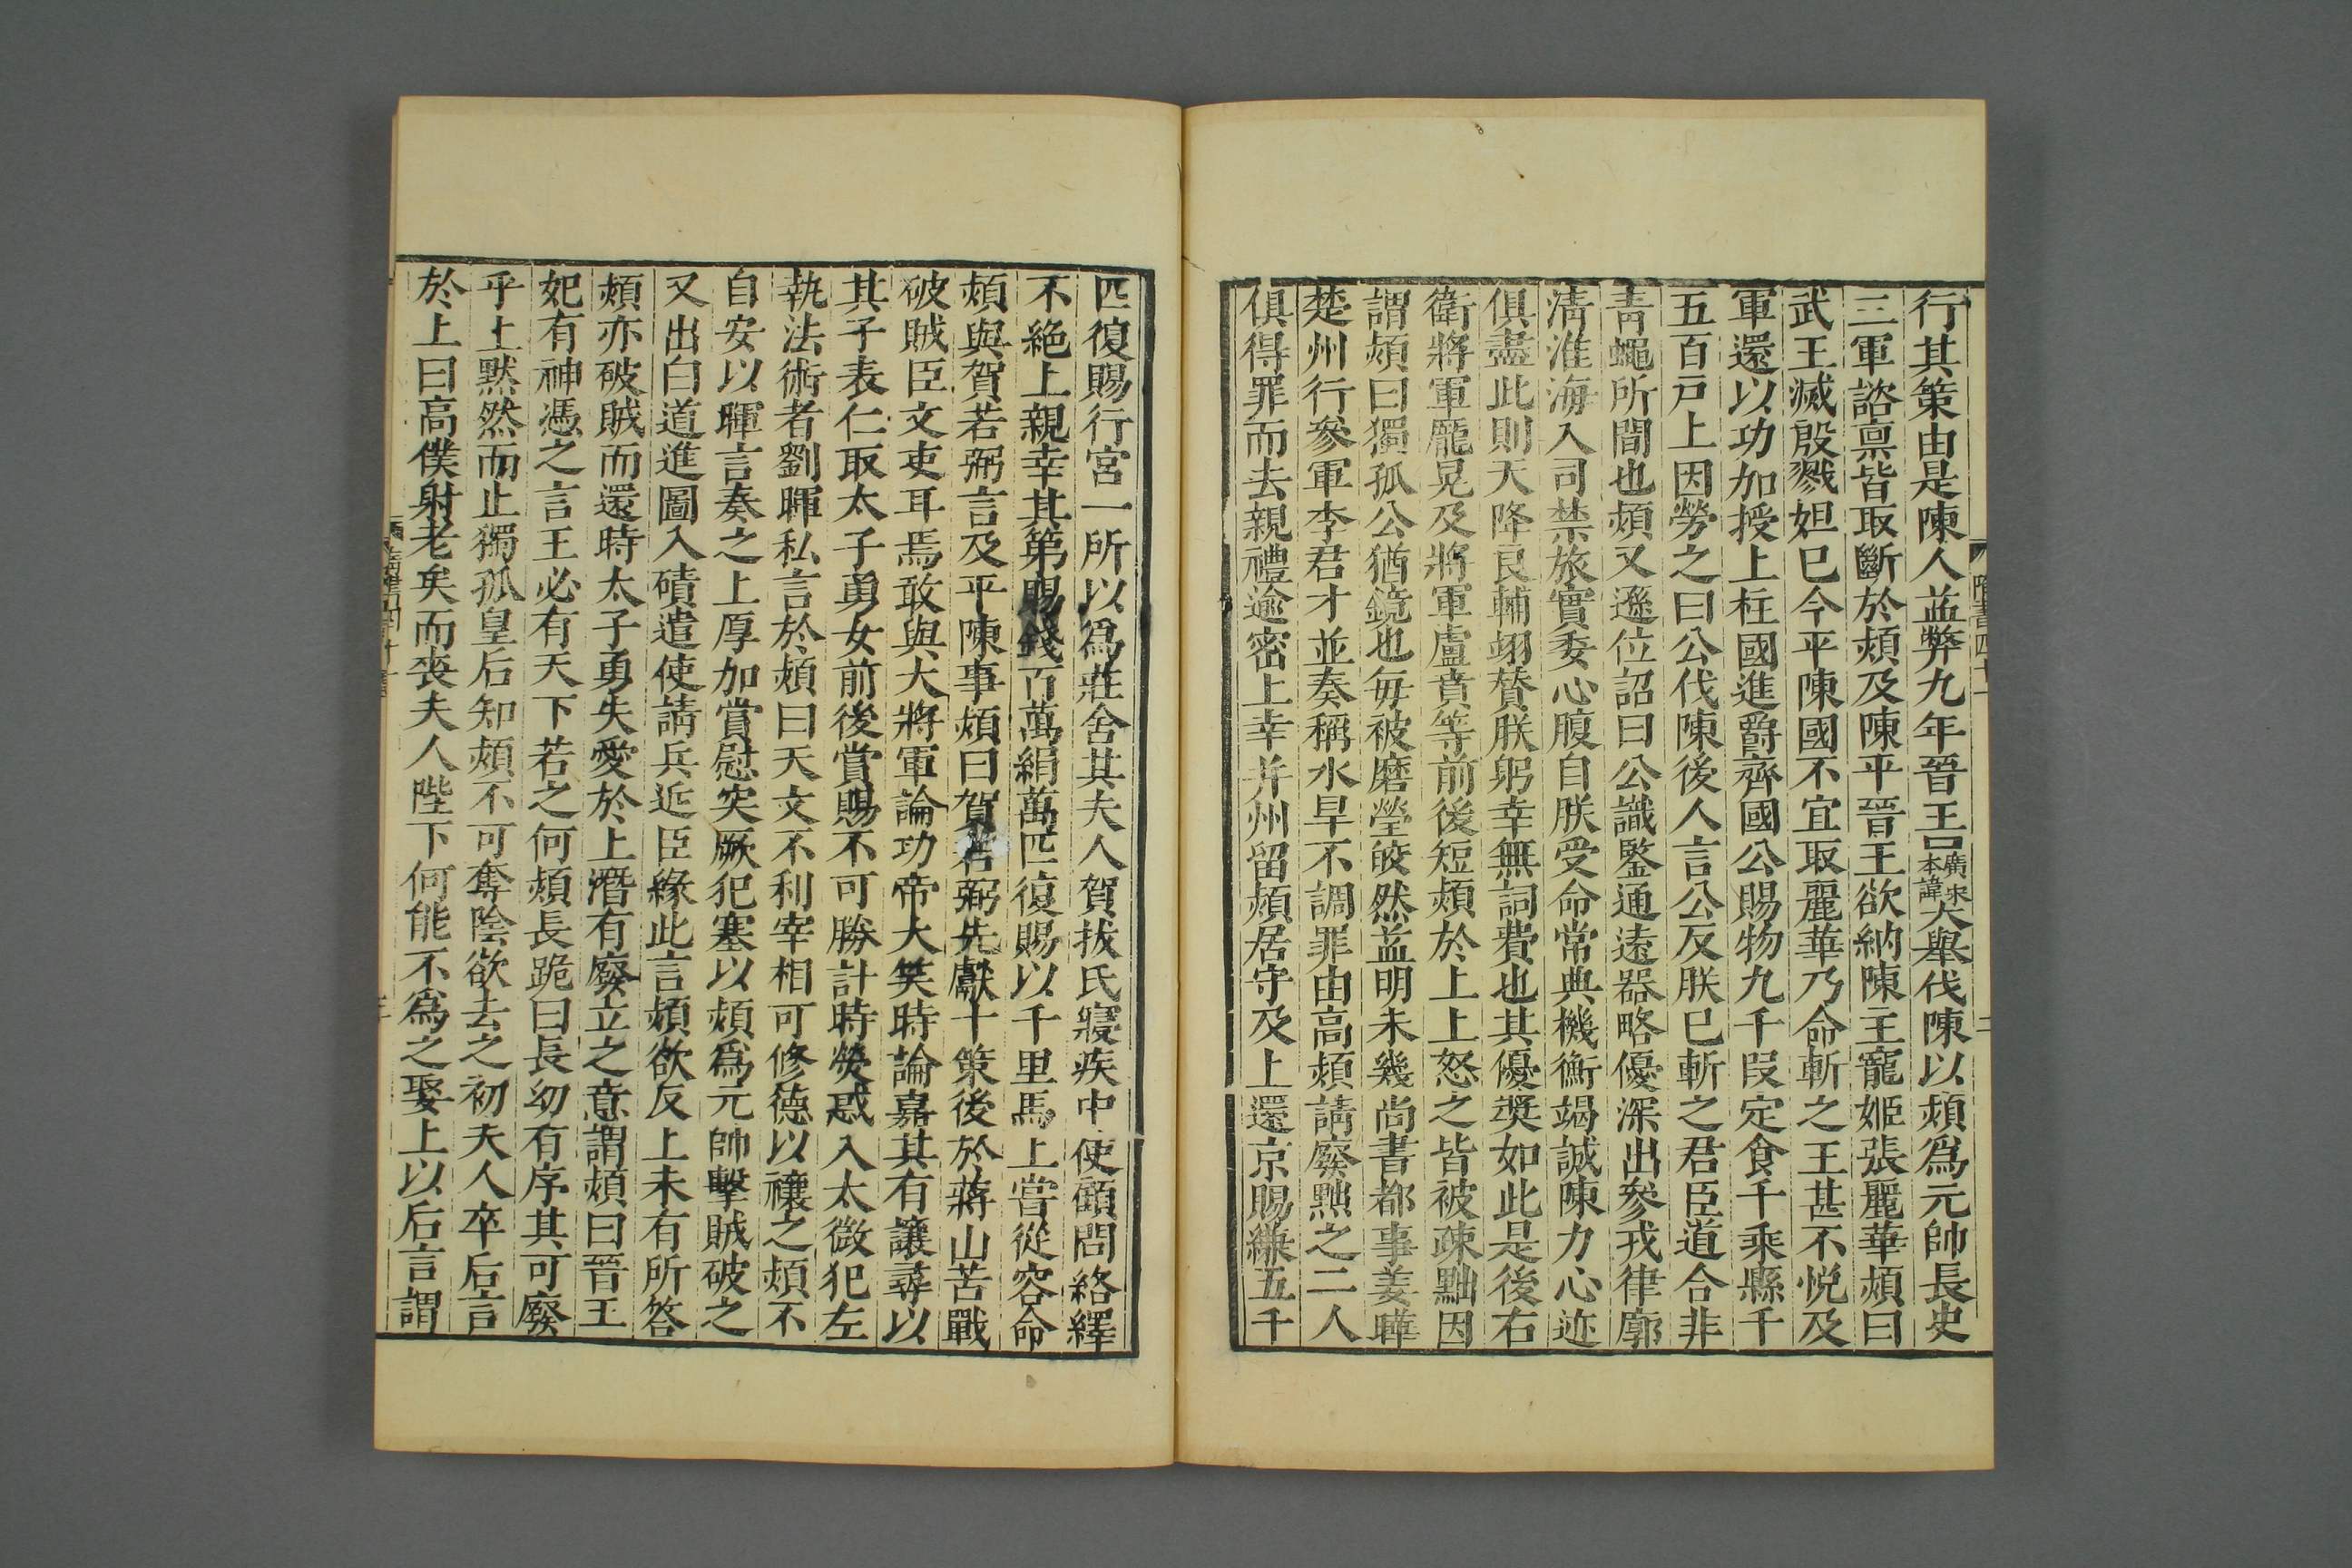 行其策由是陳人益弊九年晉王廣宋本諱大舉伐陳以熲爲元帥長史
三軍諮禀皆取斷於熲及陳平晉王欲納陳主寵姬張麗華熲曰
武王滅殷戮妲巳今平陳國不宜取麗華乃命斬之王甚不悅及
軍還以功加授上柱國進爵齊國公賜物九千段定食千乘縣千
五百戸上因勞之曰公伐陳後人言公反朕巳斬之君臣道合非
靑蠅所間也熲又遜位詔曰公識鑒通遠器略優深出參戎律廓
淸淮海入司禁旅實委心腹自朕受命常典機衡竭誠陳力心迹
俱盡此則天降良輔翊贊朕躬幸無詞費也其優奬如此是後右
衛將軍龐晃及將軍盧賁等前後短熲於上上怒之皆被疎黜因
謂熲曰獨孤公猶鏡也每被磨瑩皎然益明未幾尚書都事姜曄
楚州行參軍李君才並奏稱水旱不調罪由高熲請廢黜之二人
俱得罪而去親禮逾密上幸并州留熲居守及上還京賜縑五千
匹復賜行宮一所以爲莊舍其夫人賀拔氏寢疾中使顧問絡繹
不絶上親幸其第賜錢百萬絹萬匹復賜以千里馬上嘗從容命
熲與賀若弼言及平陳事熲曰賀若弼先獻十策後於蔣山苦戰
破賊臣文吏耳焉敢與大將軍論功帝大笑時論嘉其有讓尋以
其子表仁取太子勇女前後賞賜不可勝計時熒惑入太微犯左
執法術者劉暉私言於熲曰天文不利宰相可修德以禳之熲不
自安以暉言奏之上厚加賞慰突厥犯塞以熲爲元帥擊賊破之
又出白道進圖入磧遣使請兵近臣緣此言熲欲反上未有所答
熲亦破賊而還時太子勇失愛於上潛有廢立之意謂熲曰晉王
妃有神憑之言王必有天下若之何熲長跪曰長幼有序其可廢
乎上黙然而止獨孤皇后知熲不可奪陰欲去之初夫人卒后言
於上曰高僕射老矣而喪夫人陛下何能不爲之娶上以后言謂